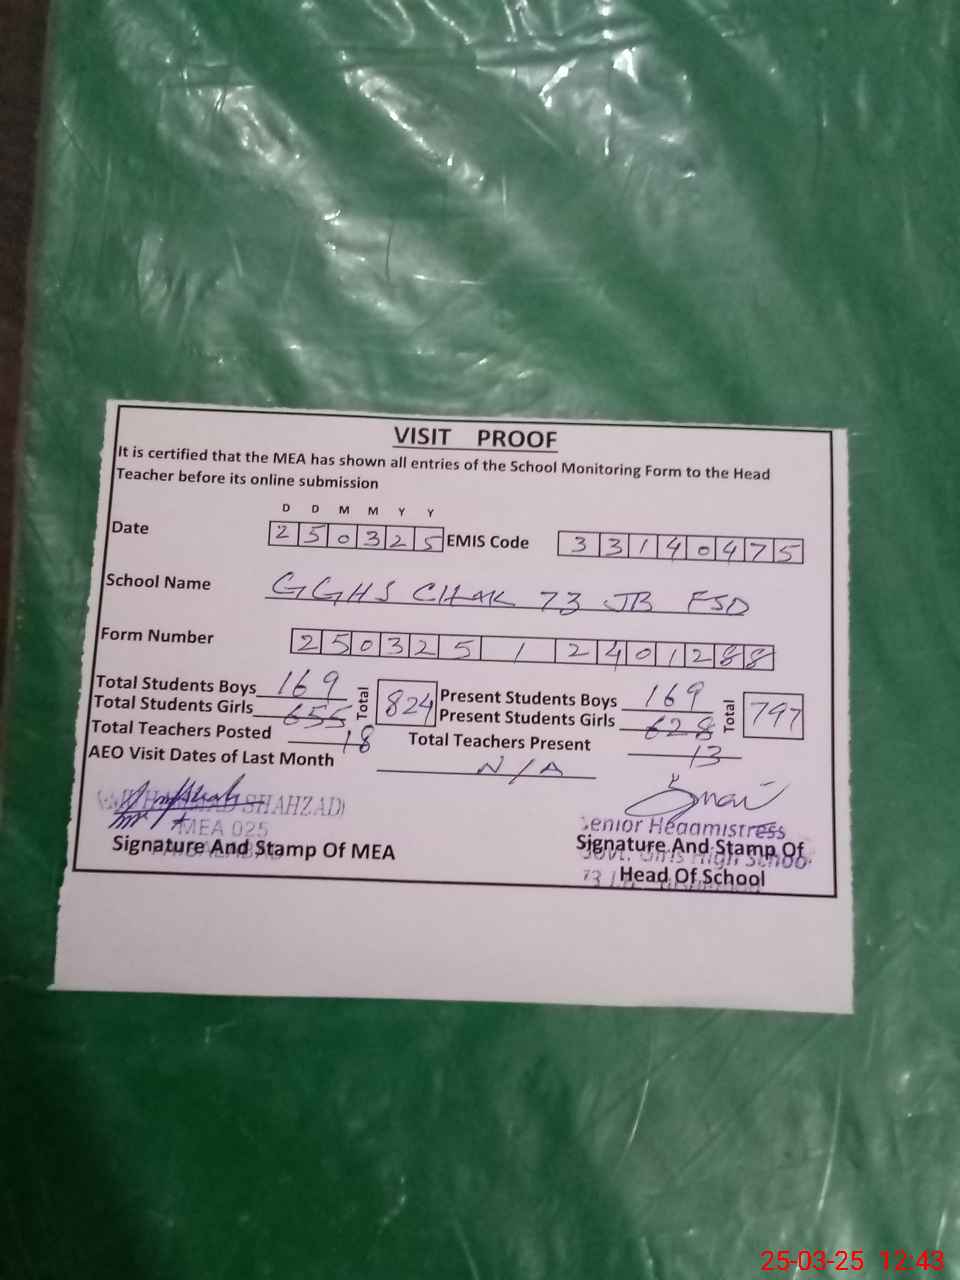 VISIT PROOF
It is certified that the MEA has shown all entries of the School Monitoring Form to the Head
Teacher before its online submission
D D M M Y Y
Date 2 5 0 3 2 5 EMIS Code 3 3 1 4 0 4 7 5
School Name GGHS CHAK 73 JB FSD
Form Number 2 5 0 3 2 5 1 2 4 0 1 2 8 8
Total Students Boys 169 Total 824 Present Students Boys 169 Total 797
Total Students Girls 655 Present Students Girls 628
Total Teachers Posted 18 Total Teachers Present 13
AEO Visit Dates of Last Month N/A
SHAHZAD)
MEA 025
Signature And Stamp Of MEA
Senior Headmistress
Signature And Stamp Of
Govt. Girls High School
Head Of School
73
25-03-25 12:43